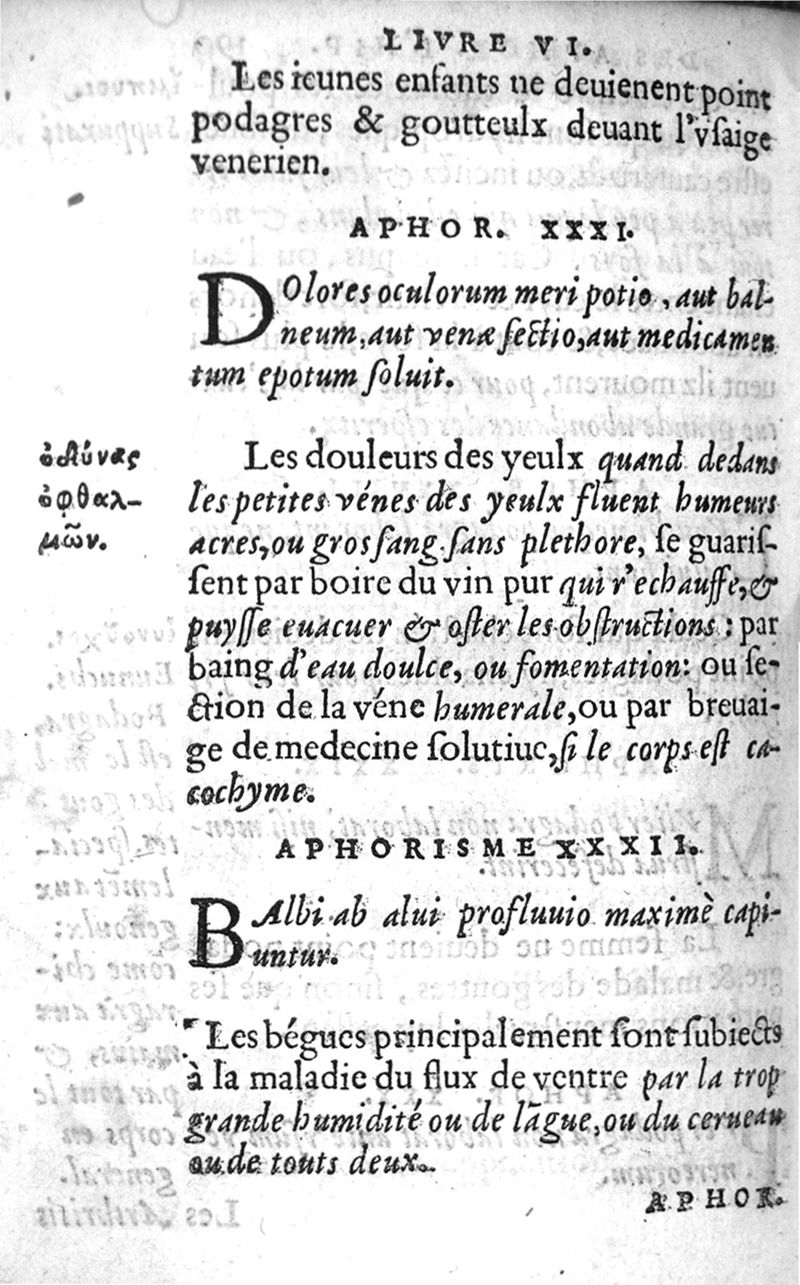 LIVRE VI.
Les ieunes enfants ne deuienent point
podagres & goutteulx deuant l'vſaige
venerien.
APHOR. XXXI.
DOlores oculorum meri potio, aut bal-
neum, aut venæ ſectio, aut medicamen
tum epotum ſoluit.
ὀδύνας
ὀφθαλ-
μῶν.
Les douleurs des yeulx quand dedans
les petites vénes des yeulx fluent humeurs
acres, ou gros ſang ſans plethore, ſe guariſ-
ſent par boire du vin pur qui r'echauffe, &
puyſſe euacuer & oſter les obſtructions : par
baing d'eau doulce, ou fomentation: ou ſe-
ction de la véne humerale, ou par breuai-
ge de medecine ſolutiue, ſi le corps eſt ca-
cochyme.
APHORISME XXXII.
BAlbi ab alui profluuio maximè capi-
untur.
Les bégues principalement ſont ſubiects
à la maladie du flux de ventre par la trop
grande humidité ou de lãgue, ou du cerueau
ou de touts deux.
APHOR.